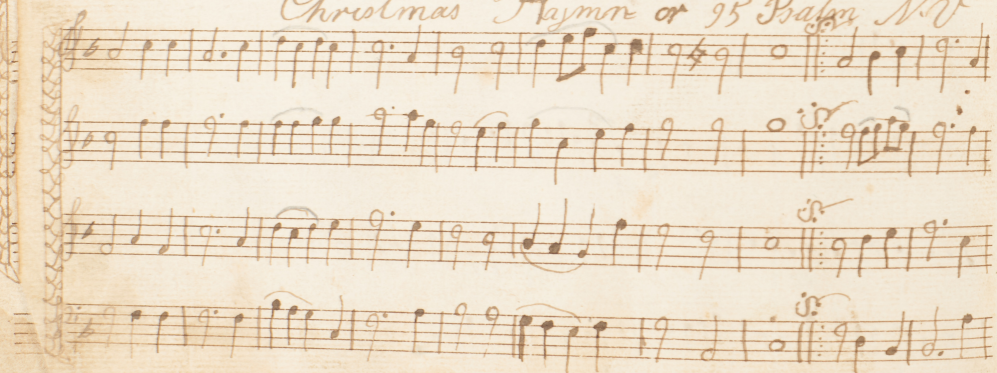 Christmas Hymn or 95 Psalm N.V